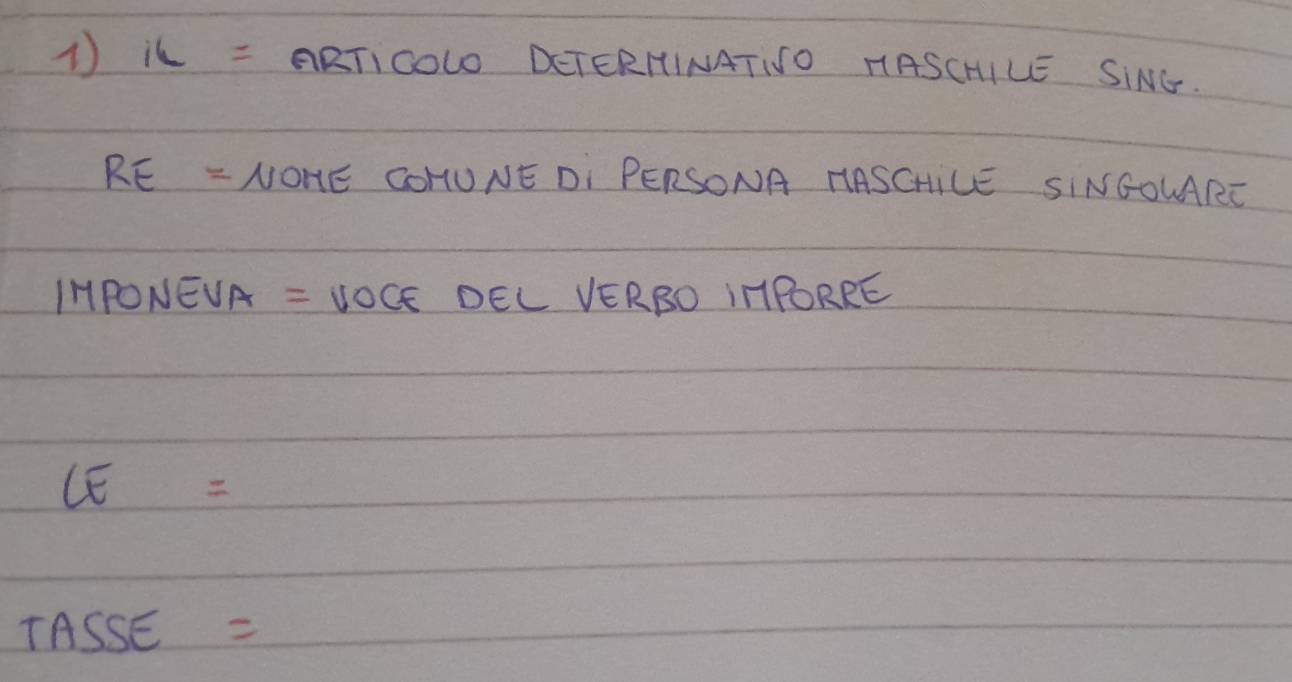 1) iL = ARTiCOLO DETERMINATIVO MASCHILE SING.
RE = NOME COMUNE Di PERSONA MASCHiLE SINGOLARE
IMPONEVA = VOCE DEL VERBO IMPORRE
LE =
TASSE =